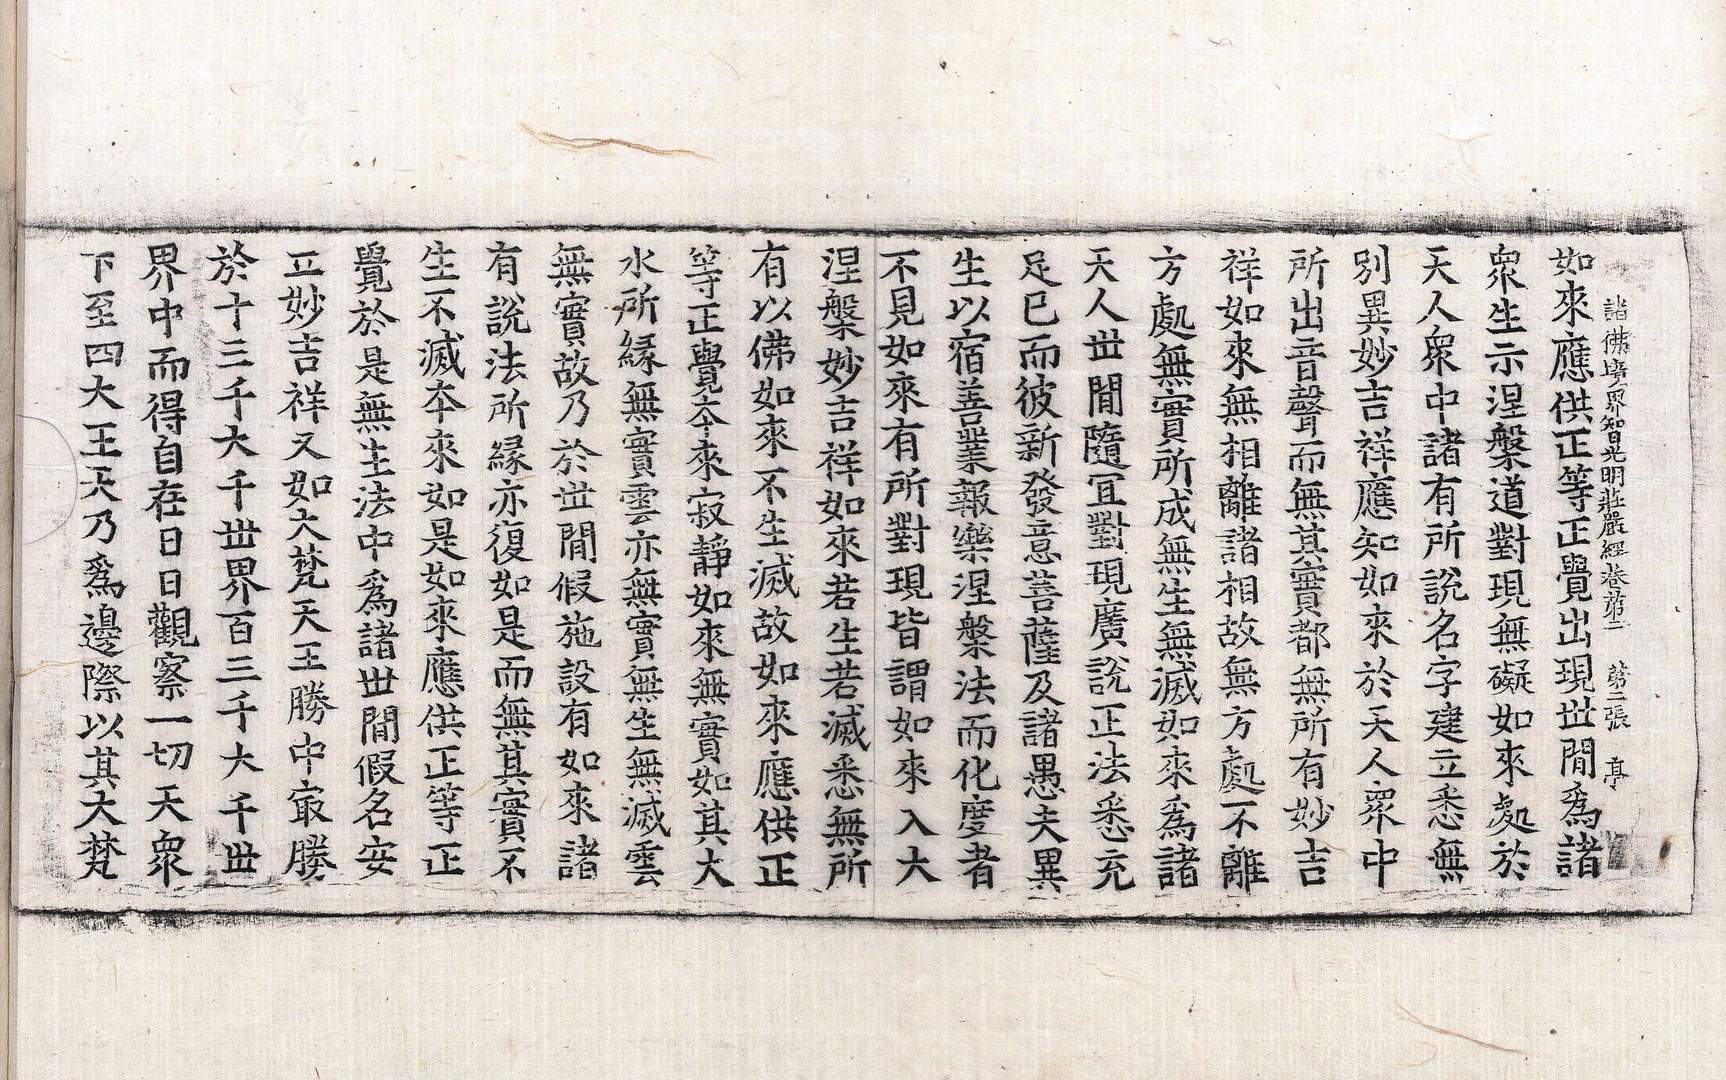 諸佛境界智光明莊嚴經卷第二　第二張　亭
如來應供正等正覺出現世間爲諸
衆生示涅槃道對現無礙如來處於
天人衆中諸有所說名字建立悉無
別異妙吉祥應知如來於天人衆中
所出音聲而無其實都無所有妙吉
祥如來無相離諸相故無方處不離
方處無實所成無生無滅如來爲諸
天人世間隨宜對現廣說正法悉充
足已而彼新發意菩薩及諸愚夫異
生以宿善業報樂涅槃法而化度者
不見如來有所對現皆謂如來入大
涅槃妙吉祥如來若生若滅悉無所
有以佛如來不生滅故如來應供正
等正覺本來寂靜如來無實如其大
水所緣無實雲亦無實無生無滅雲
無實故乃於世間假施設有如來諸
有說法所緣亦復如是而無其實不
生不滅本來如是如來應供正等正
覺於是無生法中爲諸世間假名安
立妙吉祥又如大梵天王勝中㝡勝
於十三千大千世界百三千大千世
界中而得自在日日觀察一切天衆
下至四大王天乃爲邊際以其大梵